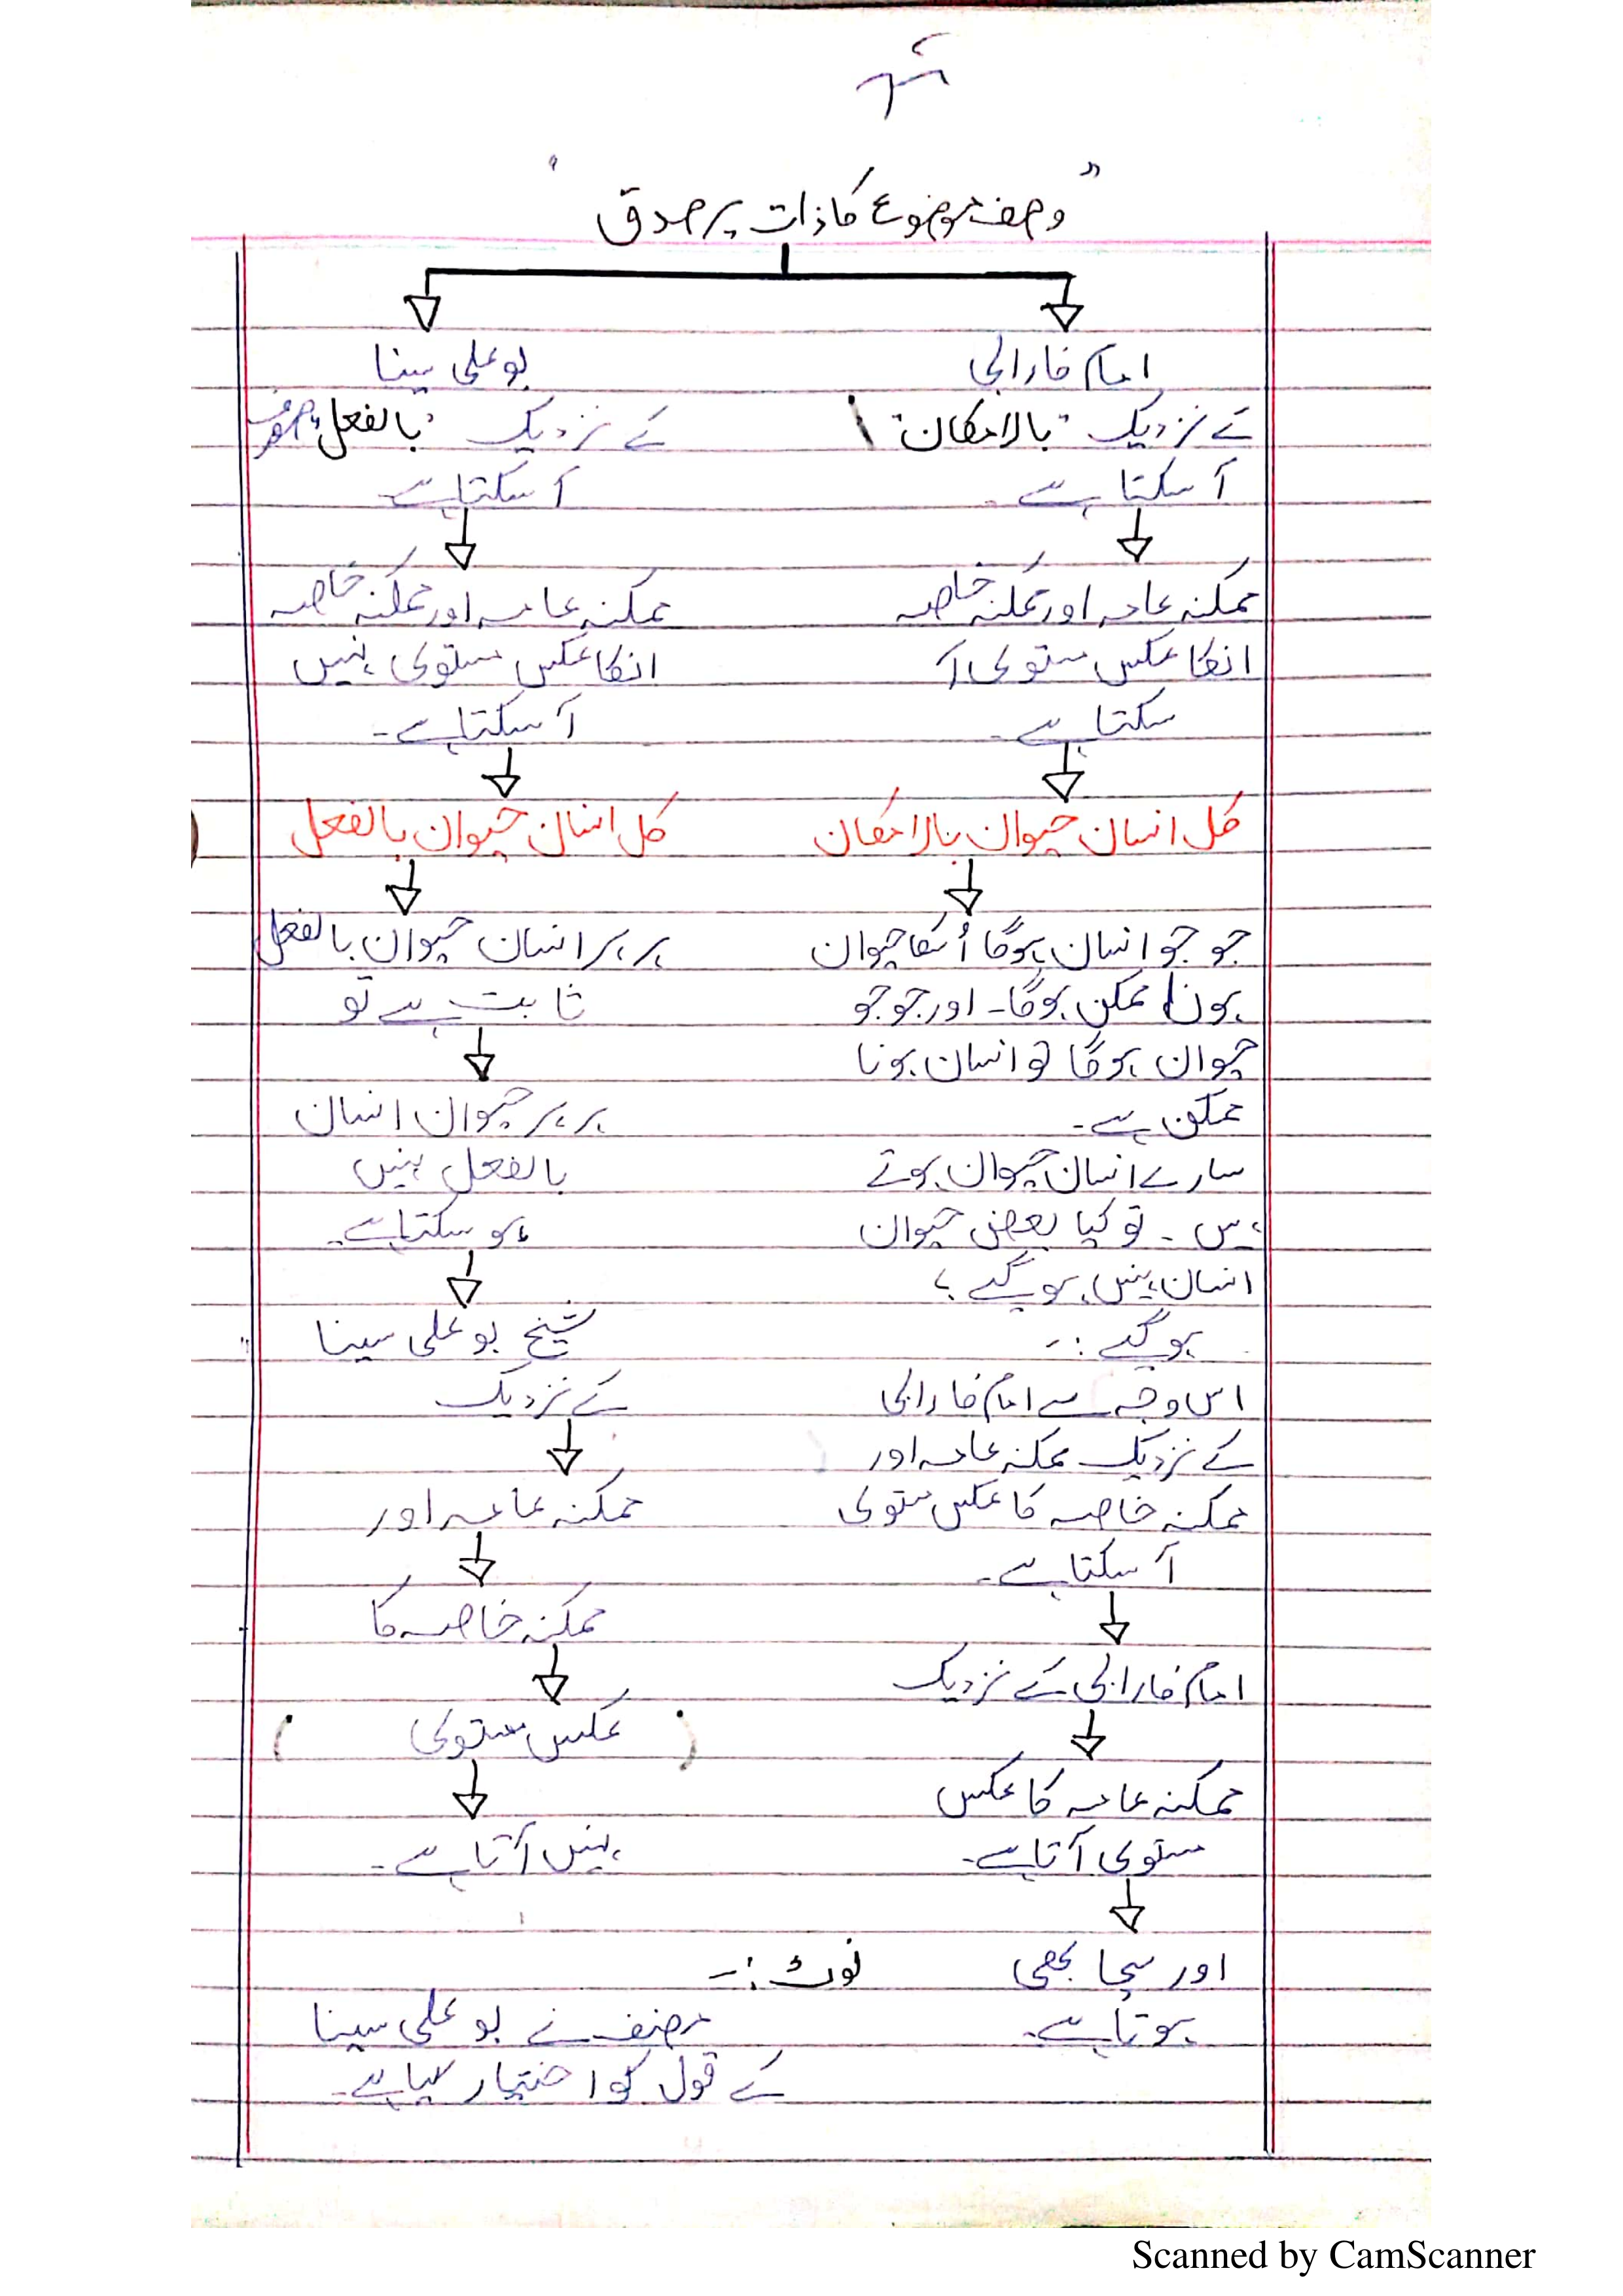 "وصف موضوع کا ذات پر صدق"
امام فارابی
کے نزدیک "بالامکان"
آ سکتا ہے۔
ممکنہ عامہ اور ممکنہ خاصہ
انکا عکس مستوی آ
سکتا ہے۔
کل انسان حیوان بالامکان
جو جو انسان ہوگا اُسکا حیوان
ہونا ممکن ہوگا۔ اور جو جو
حیوان ہوگا تو انسان ہونا
ممکن ہے۔
سارے انسان حیوان ہوتے
ہیں۔ تو کیا بعض حیوان
انسان نہیں ہوگے؟
ہوگے :۔
اس وجہ سے امام فارابی
کے نزدیک ممکنہ عامہ اور
ممکنہ خاصہ کا عکس مستوی
آ سکتا ہے۔
امام فارابی کے نزدیک
ممکنہ عامہ کا عکس
مستوی آتا ہے۔
اور سچا بھی
ہوتا ہے۔
بو علی سینا
کے نزدیک "بالفعل" صرف
آ سکتا ہے۔
ممکنہ عامہ اور ممکنہ خاصہ
انکا عکس مستوی نہیں
آ سکتا ہے۔
کل انسان حیوان بالفعل
ہر ہر انسان حیوان بالفعل
ثابت ہے تو
ہر ہر حیوان انسان
بالفعل نہیں
ہو سکتا ہے۔
شیخ بو علی سینا
کے نزدیک
ممکنہ عامہ اور
ممکنہ خاصہ کا
(عکس مستوی)
نہیں آتا ہے۔
نوٹ :۔
مصنف نے بو علی سینا
کے قول کو اختیار کیا ہے۔
Scanned by CamScanner